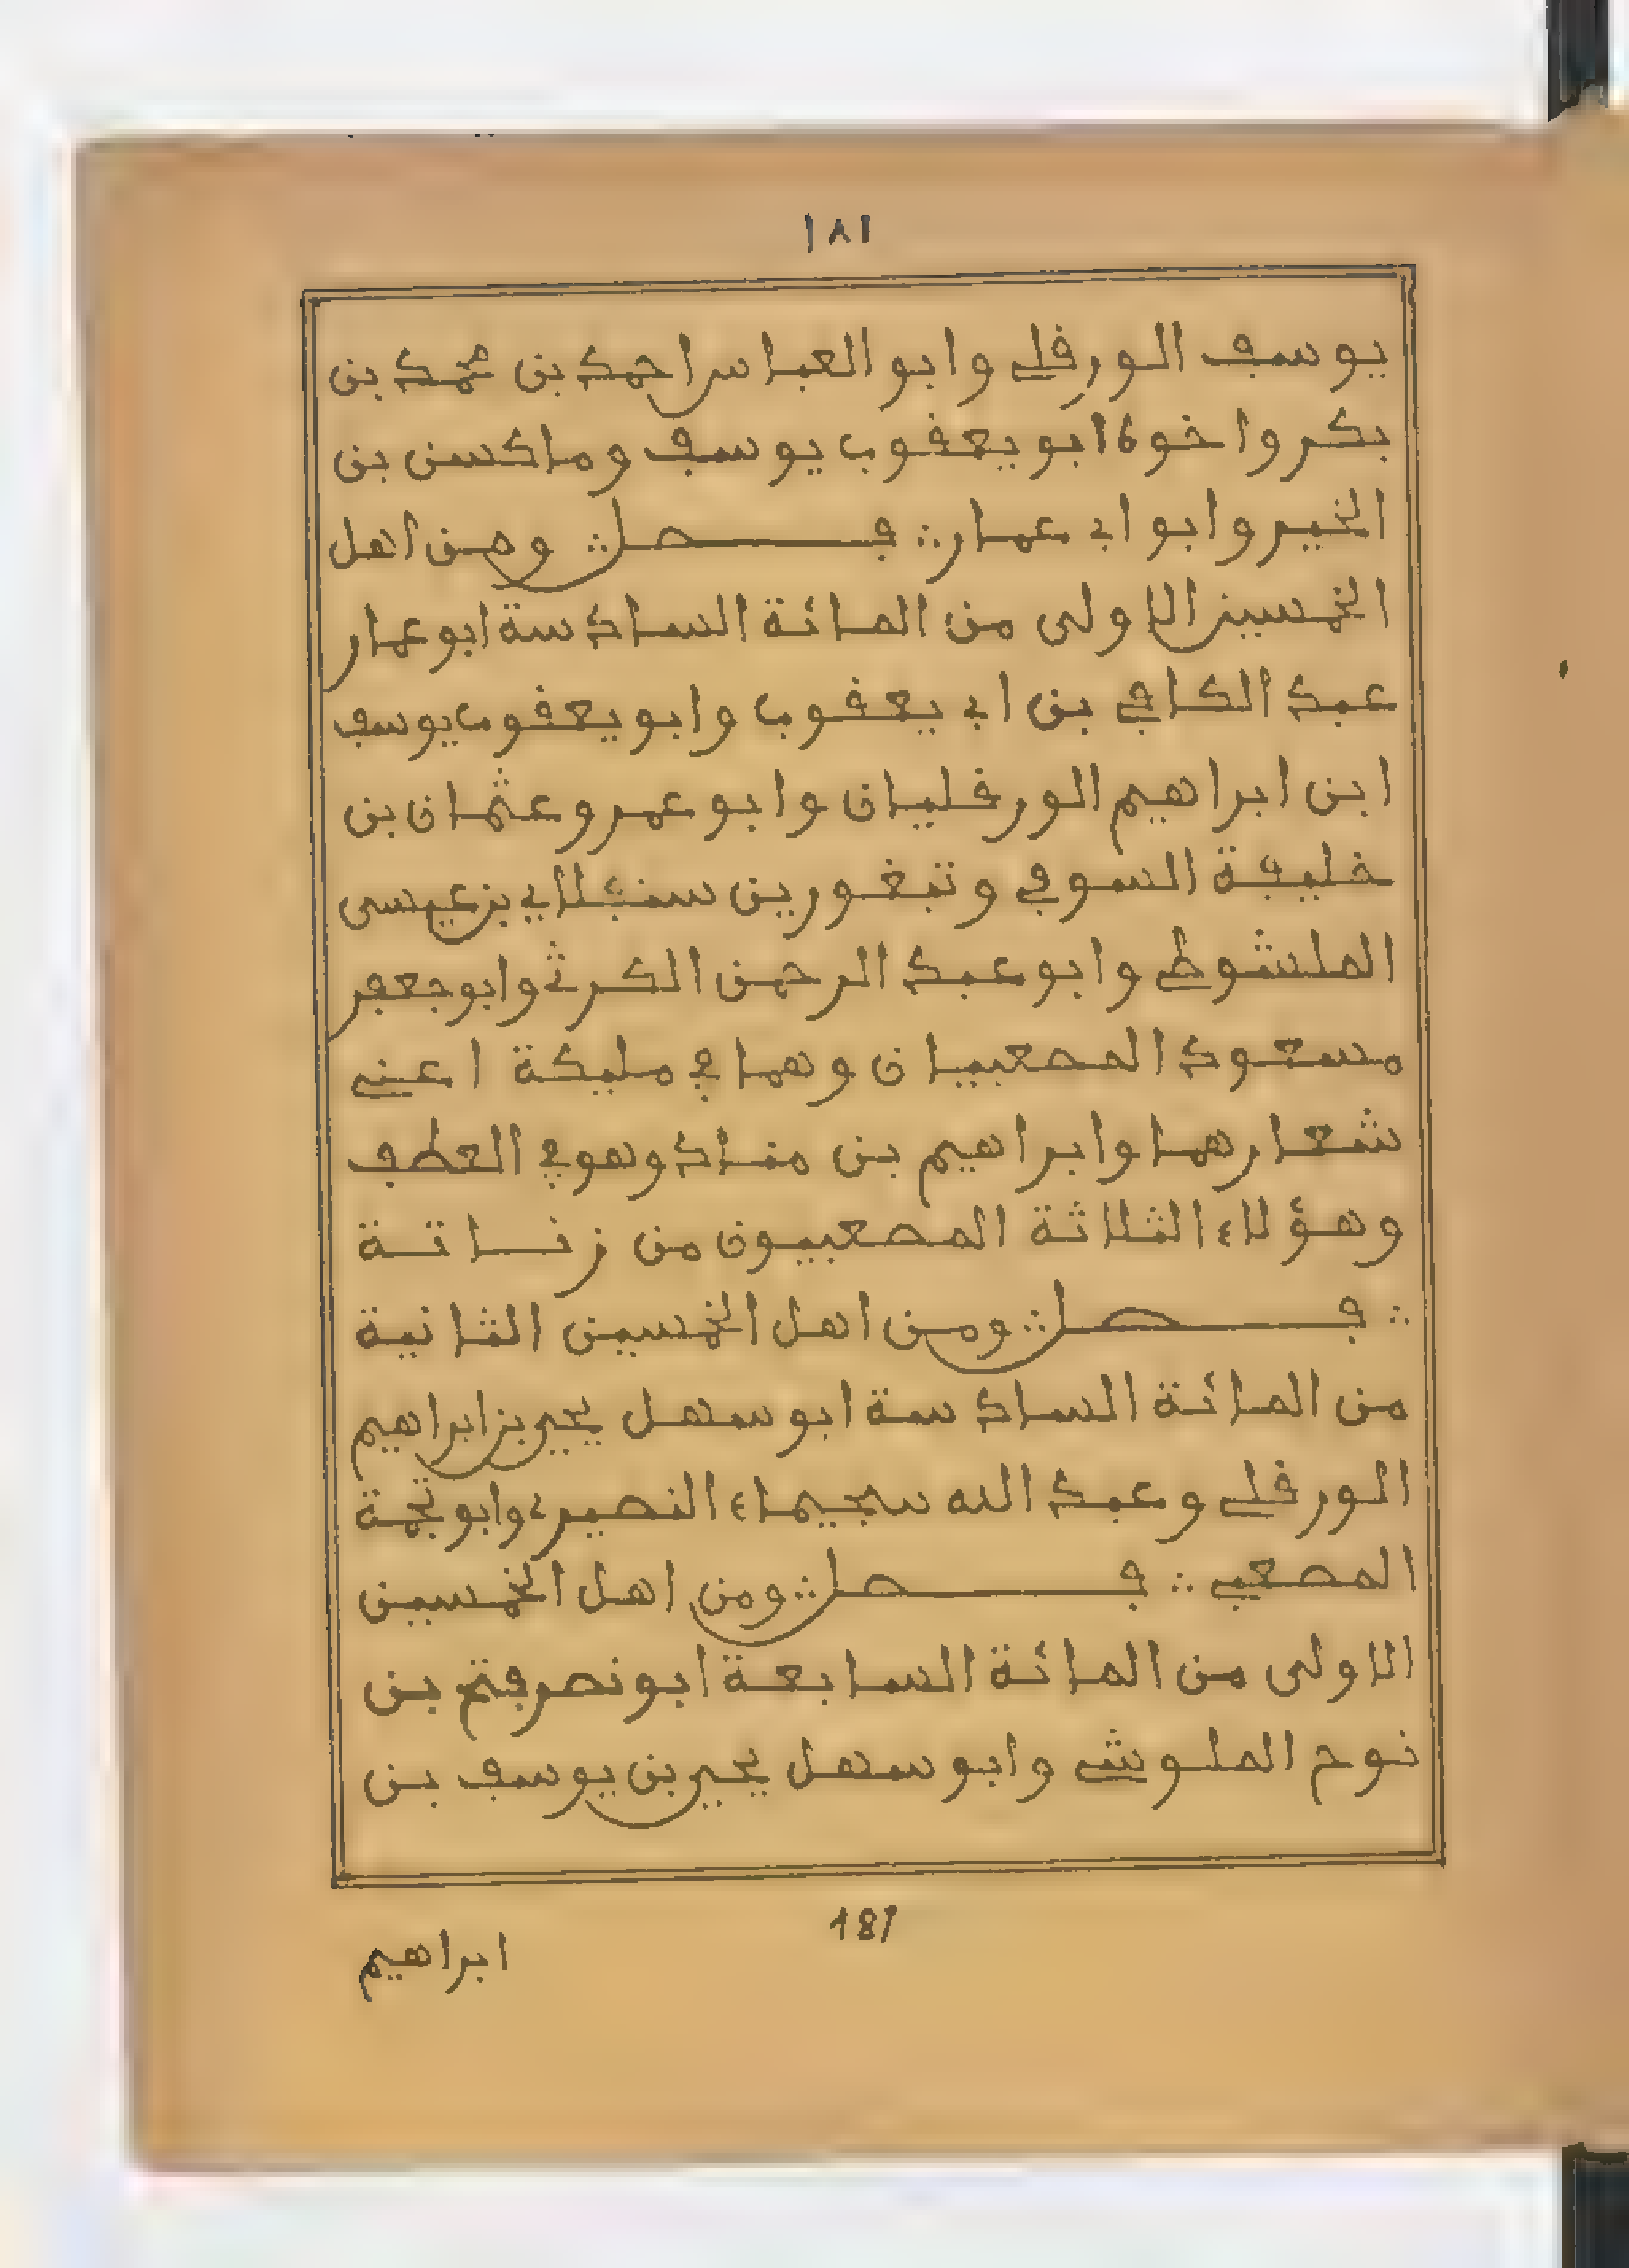 ١٨١
يوسف الورقلي وابو العباس احمد بن محمد بن
بكر واخوه ابو يعقوب يوسف وماكسن بن
الخير وابو ابي عمار ∴ فصل ∴ ومن اهل
الخمسين الاولى من المائة السادسة ابو عمار
عبد الكافي بن ابي يعقوب وابو يعقوب يوسف
ابن ابراهيم الورقليان وابو عمرو عثمان بن
خليفة السوفي وتبغورين بن عيسى
الملشوطي وابو عبد الرحمن الكرثي وابو جعفر
مسعود المصعبيان وهما في مليكة اعني
شعارهما وابراهيم بن مناد وهو في العطف
وهؤلاء الثلاثة المصعبيون من زناتة
∴ فصل ∴ ومن اهل الخمسين الثانية
من المائة السادسة ابو سهل يحيى بن ابراهيم
الورقلي وعبد الله سجيماء النصيري وابو تجمة
المصعبي ∴ فصل ∴ ومن اهل الخمسين
الاولى من المائة السابعة ابو نصر فتح بن
نوح الملوشي وابو سهل يحيى بن يوسف بن
181
ابراهيم